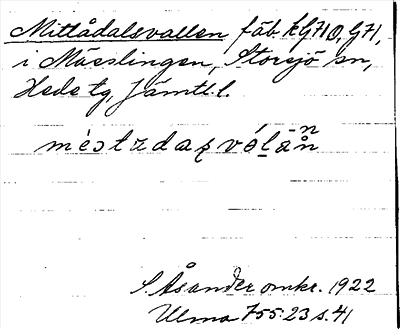 Mittådalsvallen fäb. kG710, G71,
i Mäeslingen, Storsjö sn,
Hede tg, Jämtl. l.
S. Åsander omkr. 1922
Ulma 755:23 s. 41